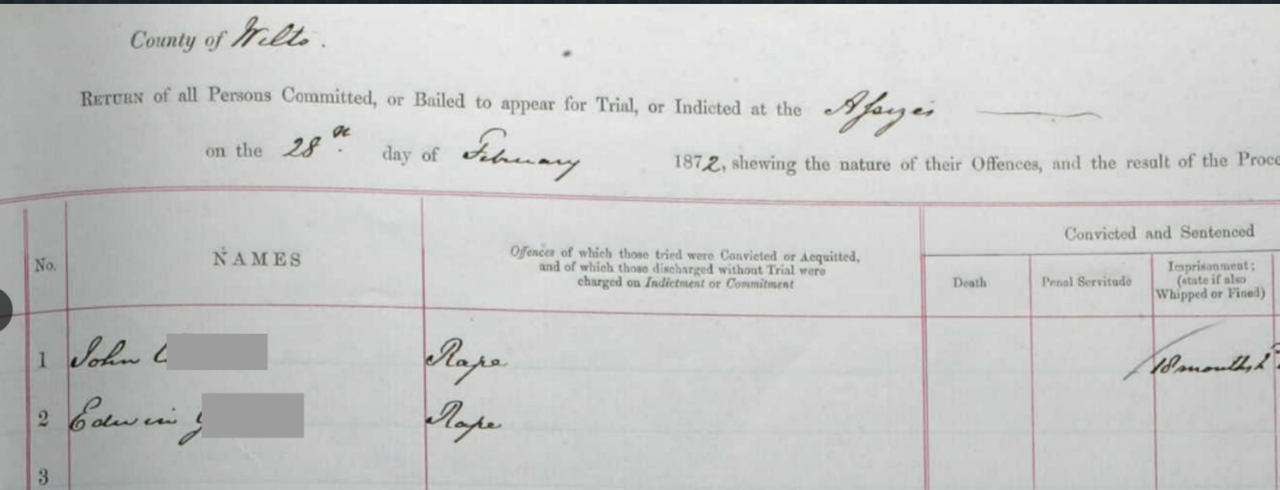 County of Wilts.
RETURN of all Persons Committed, or Bailed to appear for Trial, or Indicted at the Assizes
on the 28th. day of February 1872, shewing the nature of their Offences, and the result of the
No. NAMES Offences of which those tried were Convicted or Acquitted, and of which those discharged without Trial were charged on Indictment or Commitment
Convicted and Sentenced
Death Penal Servitude Imprisonment; (state if also Whipped or Fined)
1 John Rape 18 months
2 Edwin Rape
3